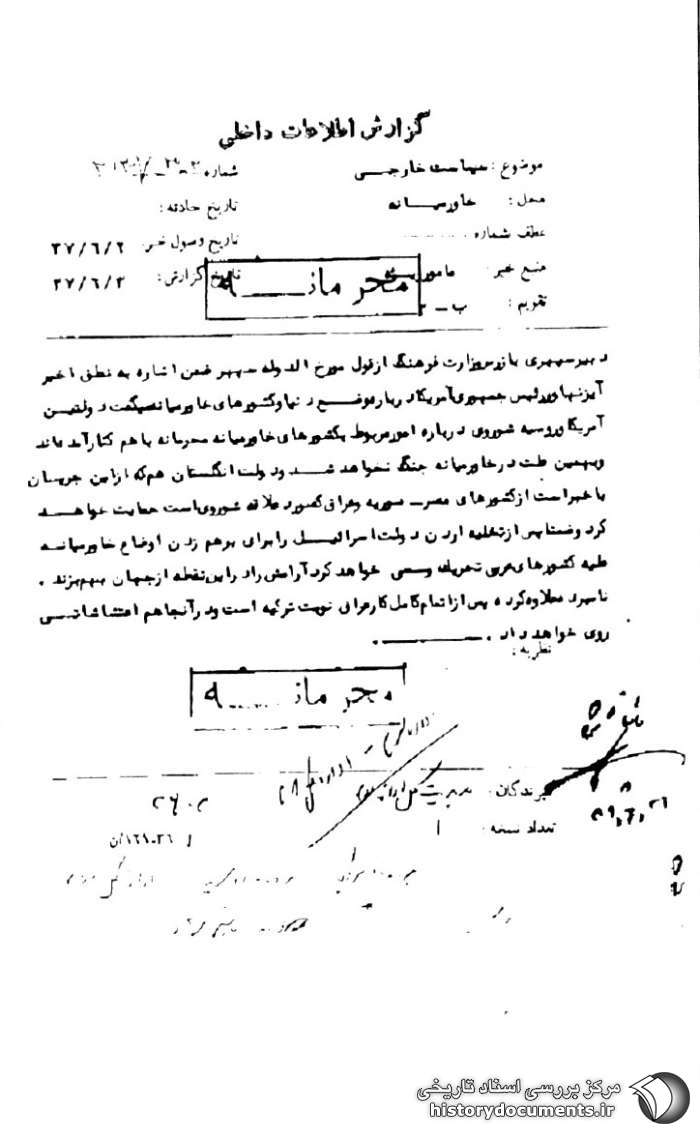 گزارش اطلاعات داخلی
موضوع : سیاست خارجی
شماره
محل : خاورمیانه
تاریخ حادثه :
عطف شماره
تاریخ وصول خبر ۳۷/۶/۲
منبع خبر : مامور
تاریخ گزارش : ۳۷/۶/۳
محرمانــــه
تقویم : ب ـ
دبیرسپهری بازرس وزارت فرهنگ از قول مورخ الدوله سپهر ضمن اشاره به نطق اخیر
آیزنهاور رئیس جمهوری آمریکا درباره وضع دنیا و کشورهای خاورمیانه میگفت دولتین
آمریکا و روسیه شوروی درباره امور مربوط بکشورهای خاورمیانه محرمانه با هم کنار آمده اند
و بهمین علت در خاورمیانه جنگ نخواهد شد و دولت انگلستان هم که از این جریان
با خبر است از کشورهای مصر ـ سوریه و عراق که مورد علاقه شوروی است حمایت خواهد
کرد و ضمنا پس از تخلیه اردن دولت اسرائیل را برای برهم زدن اوضاع خاورمیانه
علیه کشورهای عربی تحریک وسعی خواهد کرد آرامش را در این نقطه از جهان بهم بزند .
نامبرده علاوه کرد پس از اتمام کامل کار عراق نوبت ترکیه است و در آنجا هم اغتشاشاتی
روی خواهد داد .
نظریه :
محرمانــــه
گیرندگان : مدیریت کل اداره سوم
تعداد نسخه : ۱
مرکز بررسی اسناد تاریخی
historydocuments.ir